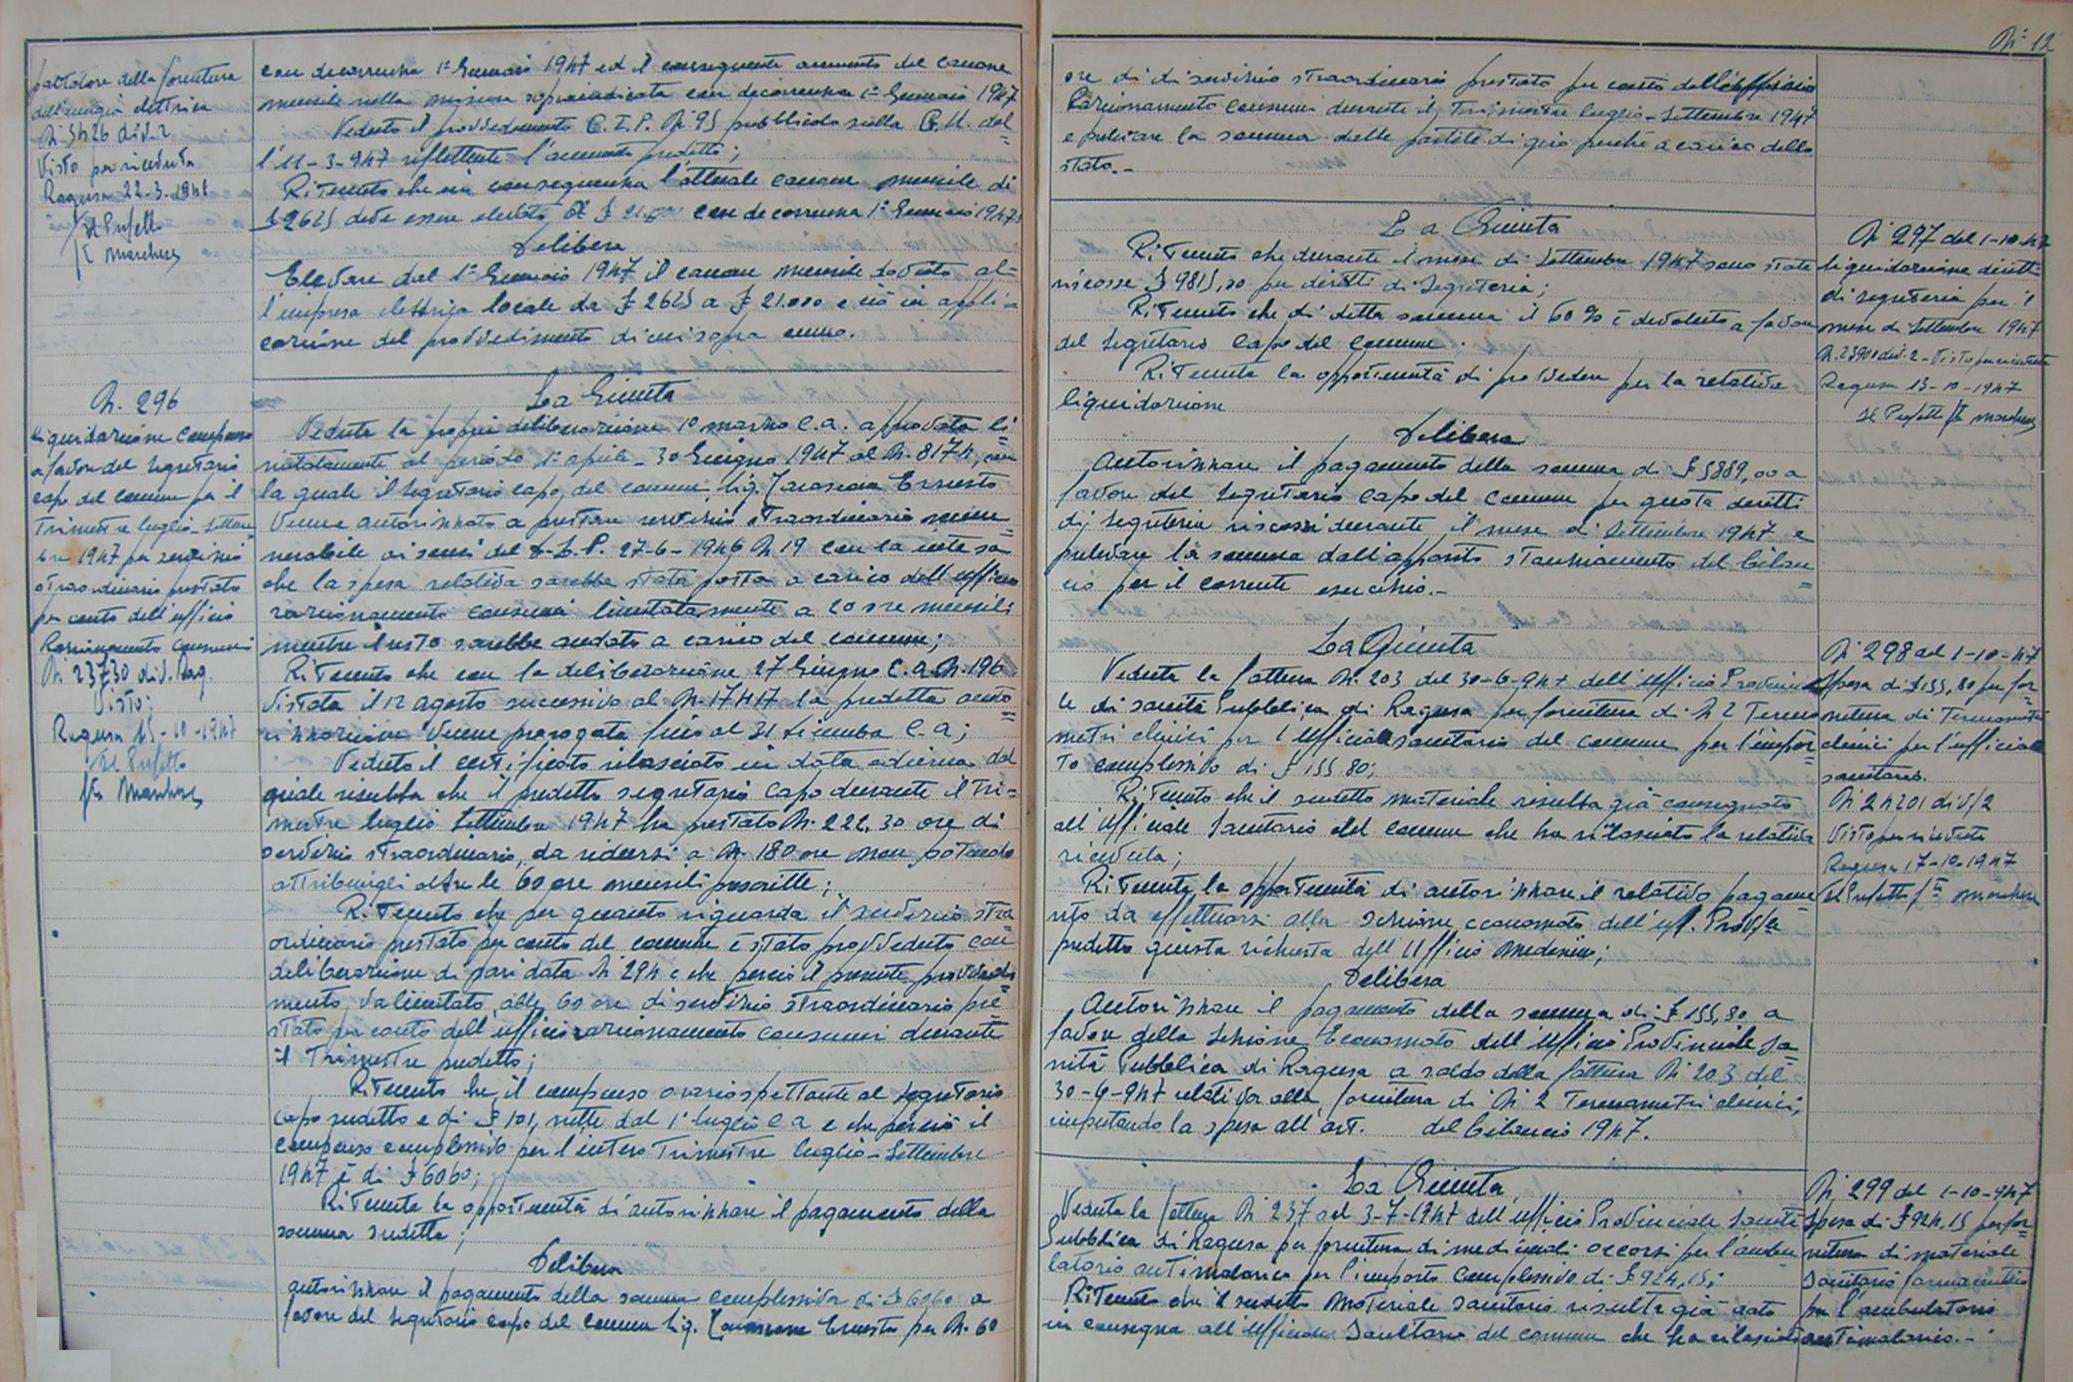 pattatore della fornitura
dell'energia elettrica
N 5426 div. 2
Visto per ricevuta
Ragusa 22-3-1948
Il Prefetto
f/to Marchese
con decorrenza 1° Gennaio 1947 ed il conseguente aumento del canone
mensile nella misura sopraindicata con decorrenza 1° Gennaio 1947
Veduto il provvedimento C.I.P. N 95 pubblicato sulla G.U. del=
l'11-3-947 riflettente l'aumento predetto;
Ritenuto che in conseguenza l'attuale canone mensile di
£ 2625 deve essere elevato a £ 21.000 con decorrenza 1° Gennaio 1947;
Delibera
Elevare dal 1° Gennaio 1947 il canone mensile dovuto al=
l'impresa elettrica locale da £ 2625 a £ 21.000 e ciò in appli=
cazione del provvedimento di cui sopra cenno.
N. 296
Liquidazione compenso
a favore del Segretario
capo del comune per il
Trimestre luglio-Settem
bre 1947 per servizio
straordinario prestato
per conto dell'ufficio
Razionamento consumi
N. 23730 div. Rag.
Visto:
Ragusa 15-10-1947
Il Prefetto
f/to Marchese
La Giunta
Veduta la propria deliberazione 10 marzo C.a. approvata li=
mitatamente al periodo 1° aprile - 30 Giugno 1947 al N. 8174, con
la quale il Segretario capo del comune Sig. Ernesto
venne autorizzato a prestare servizio straordinario remu=
nerabile ai sensi del D.L.P. 27-6-1946 N 19 con la intesa
che la spesa relativa sarebbe stata posta a carico dell'ufficio
razionamento consumi limitatamente a 20 ore mensili
mentre il resto sarebbe andato a carico del comune;
Ritenuto che con la deliberazione 27 Giugno C.a. N. 196
vistata il 12 agosto successivo al N. 17417 la predetta auto=
rizzazione venne prorogata fino al 31 Dicembre C.a;
Veduto il certificato rilasciato in data odierna dal
quale risulta che il predetto segretario capo durante il tri=
mestre luglio Settembre 1947 ha prestato N. 222,30 ore di
servizio straordinario, da ridursi a N. 180 ore non potendo
attribuirgli oltre le 60 ore mensili prescritte;
Ritenuto che per quanto riguarda il servizio stra=
ordinario prestato per conto del comune è stato provveduto con
deliberazione di pari data N 294 e che perciò il presente provvedi=
mento va limitato alle 60 ore di servizio straordinario pre=
stato per conto dell'ufficio razionamento consumi durante
il Trimestre predetto;
Ritenuto che il compenso orario spettante al Segretario
capo sudetto è di £ 101, nette dal 1° luglio C.a e che perciò il
compenso complessivo per l'intero Trimestre luglio-Settembre
1947 è di £ 6060;
Ritenuta la opportunità di autorizzare il pagamento della
somma sudetta;
Delibera
autorizzare il pagamento della somma complessiva di £ 6060 a
favore del Segretario capo del comune Sig. Ernesto per N. 60
N° 12
ore di di servizio straordinario prestato per conto dell'ufficio
Razionamento Consumi durante il Trimestre luglio-Settembre 1947
e prelevare la somma dalle partite di giro perché a carico dello
stato.-
La Giunta
Ritenuto che durante il mese di Settembre 1947 sono state
riscosse £ 9815,00 per diritti di Segreteria;
Ritenuto che di detta somma il 60% è devoluto a favore
del Segretario Capo del Comune.
Ritenuta la opportunità di provvedere per la relativa
liquidazione
Delibera
Autorizzare il pagamento della somma di £ 5889,00 a
favore del Segretario Capo del Comune per quota diritti
di Segreteria riscossi durante il mese di Settembre 1947 e
prelevare la somma dall'apposito stanziamento del bilan=
cio per il corrente esercizio.-
N 297 del 1-10-47
Liquidazione diritti
di segreteria per il
mese di Settembre 1947
N. 23900 div. 2 - Visto per ricevuta
Ragusa 13-10-1947
Il Prefetto f/to Marchese
La Giunta
Veduta la fattura N. 203 del 30-6-947 dell'Ufficio Provincia=
le di sanità Pubblica di Ragusa per fornitura di N 2 Termo=
metri clinici per l'Ufficiale sanitario del comune per l'impor=
to complessivo di £ 155,80;
Ritenuto che il sudetto materiale risulta già consegnato
all'Ufficiale Sanitario del comune che ha rilasciato la relativa
ricevuta;
Ritenuta la opportunità di autorizzare il relativo pagame=
nto da effettuarsi alla sezione economato dell'uff. Prov/le
predetto giusta richiesta dell'Ufficio medesimo;
Delibera
Autorizzare il pagamento della somma di £ 155,80 a
favore della Sezione Economato dell'Ufficio Provinciale Sa=
nità Pubblica di Ragusa a saldo della fattura N 203 del
30-6-947 relativa alla fornitura di N 2 Termometri clinici,
imputando la spesa all'art. del bilancio 1947.
N 298 del 1-10-47
Spesa di £ 155,80 per for=
nitura di Termometri
clinici per l'ufficiale
sanitario.
N 24201 div/2
Visto per ricevuta
Ragusa 17-10-1947
Il Prefetto f/to Marchese
La Giunta
Veduta la fattura N 237 del 3-7-1947 dell'Ufficio Provinciale Sanità
Pubblica di Ragusa per fornitura di medicinali occorsi per l'ambu=
latorio antimalarico per l'importo complessivo di £ 924,15;
Ritenuto che il sudetto materiale sanitario risulta già dato
in consegna all'Ufficiale Sanitario del comune che ha rilasciato
N 299 del 1-10-947
Spesa di £ 924,15 per for=
nitura di materiale
Sanitario farmaceutico
per l'ambulatorio
antimalarico.-